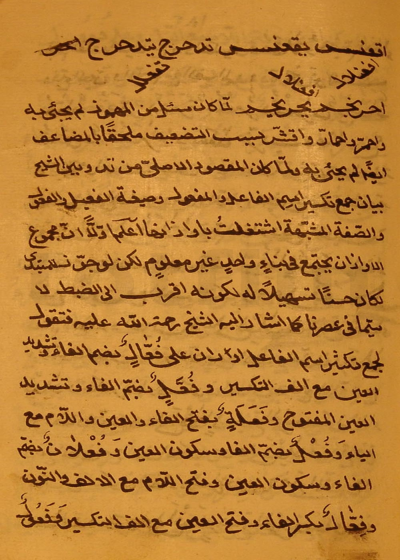 اقعنس يقعنس تدحرج يتدحرج احر
افعنلال افعنلال تفعلل
احرنجم يحرنجم لما كان مسئل من المهموز لم يجئ به
واحمر واحمار واقشر بسبب التضعيف ملحقا بالمضاعف
ايضا لم يجئ به ولما كان المقصود الاصلي من تدوين الشيخ
بيان جمع تكسير اسم الفاعل والمفعول وصيغة الفعيل والفعول
والصفة المشبهة اشتغلت باوزانها اعلم اولا ان مجموع
الاوزان يجتمع في بناء واحد غير معلوم لكن لو جئ
لكان حسنا تسهيلا له لكونه اقرب الى الضبط لا
سيما في عصرنا كما اشار اليه الشيخ رحمة الله عليه فنقول
لجمع تكسير اسم الفاعل اوزان على فعال بضم الفاء وتشديد
العين مع الف التكسير وفعل بضم الفاء وتشديد
العين المفتوح وفعلة بفتح الفاء والعين واللام مع
التاء وفعل بضم الفاء وسكون العين وفعلان بضم
الفاء وسكون العين وفتح اللام مع الالف والنون
وفعال بكسر الفاء وفتح العين مع الف التكسير وفعول